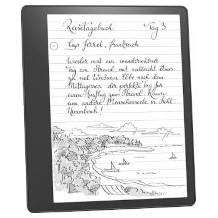 Reisetagebuch Tag 3
Cap Ferret, Frankreich
Wieder mal ein wunderschöner
Tag am Strand, mit vielleicht etwas
zu viel Wind. Aber nach dem
Mittagessen der perfekte Tag für
einen Ausflug zum Strand. Kaum
ein andere Menschenseele in Sicht